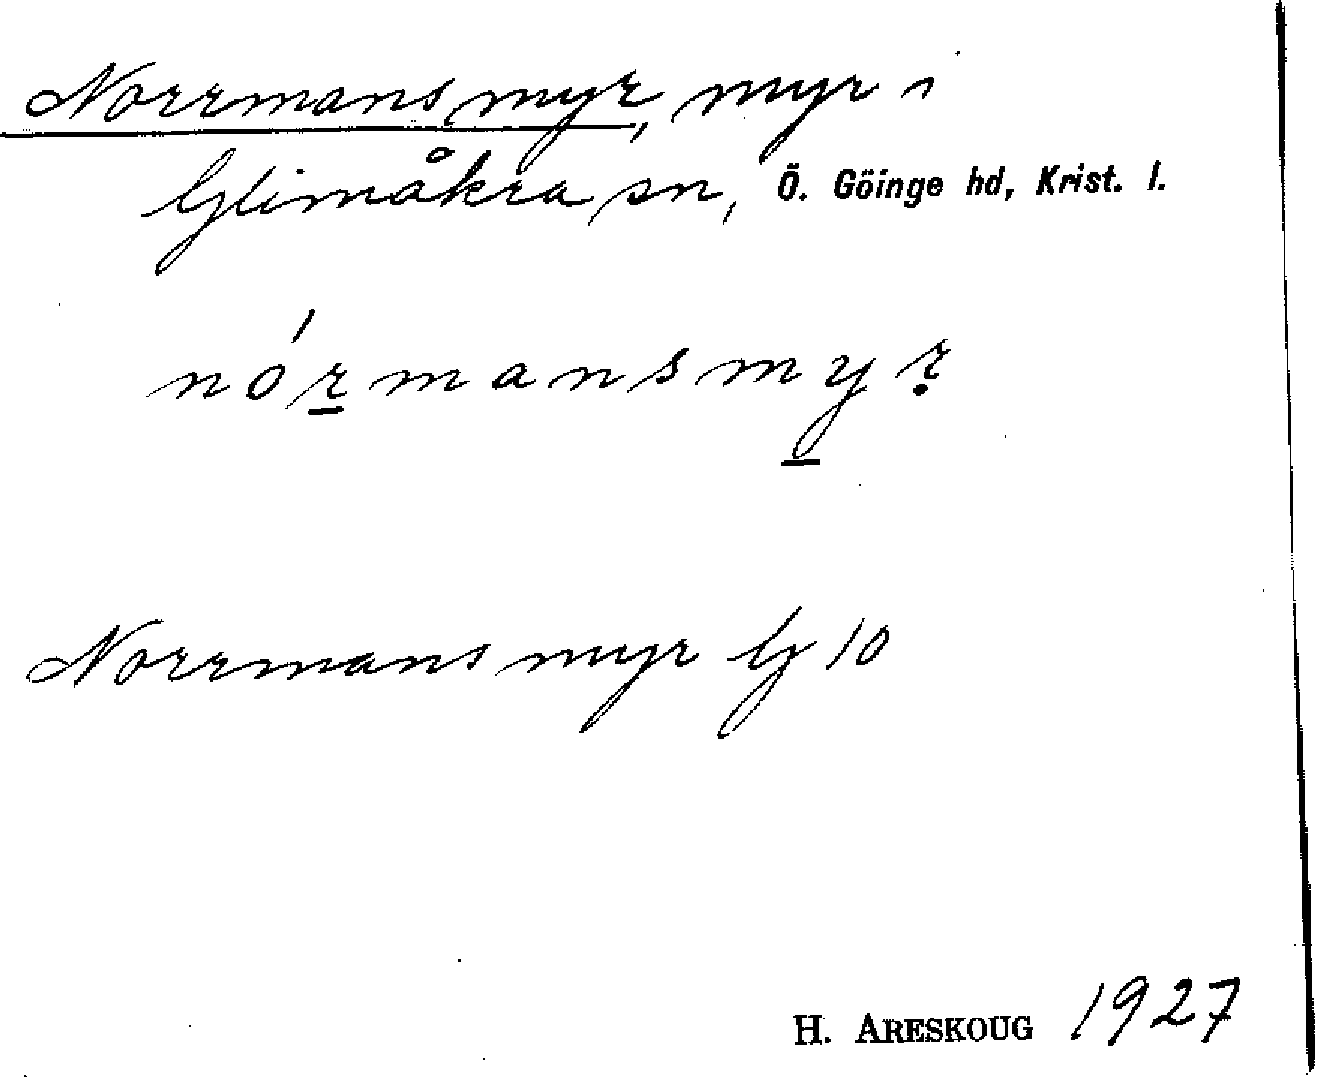 Norrmansmyr, myr i
Glimåkra sn, Ö. Göinge hd, Krist. l.
nó̱rmansmy̱ṛ
Norrmansmyr G 10
H. ARESKOUG 1927